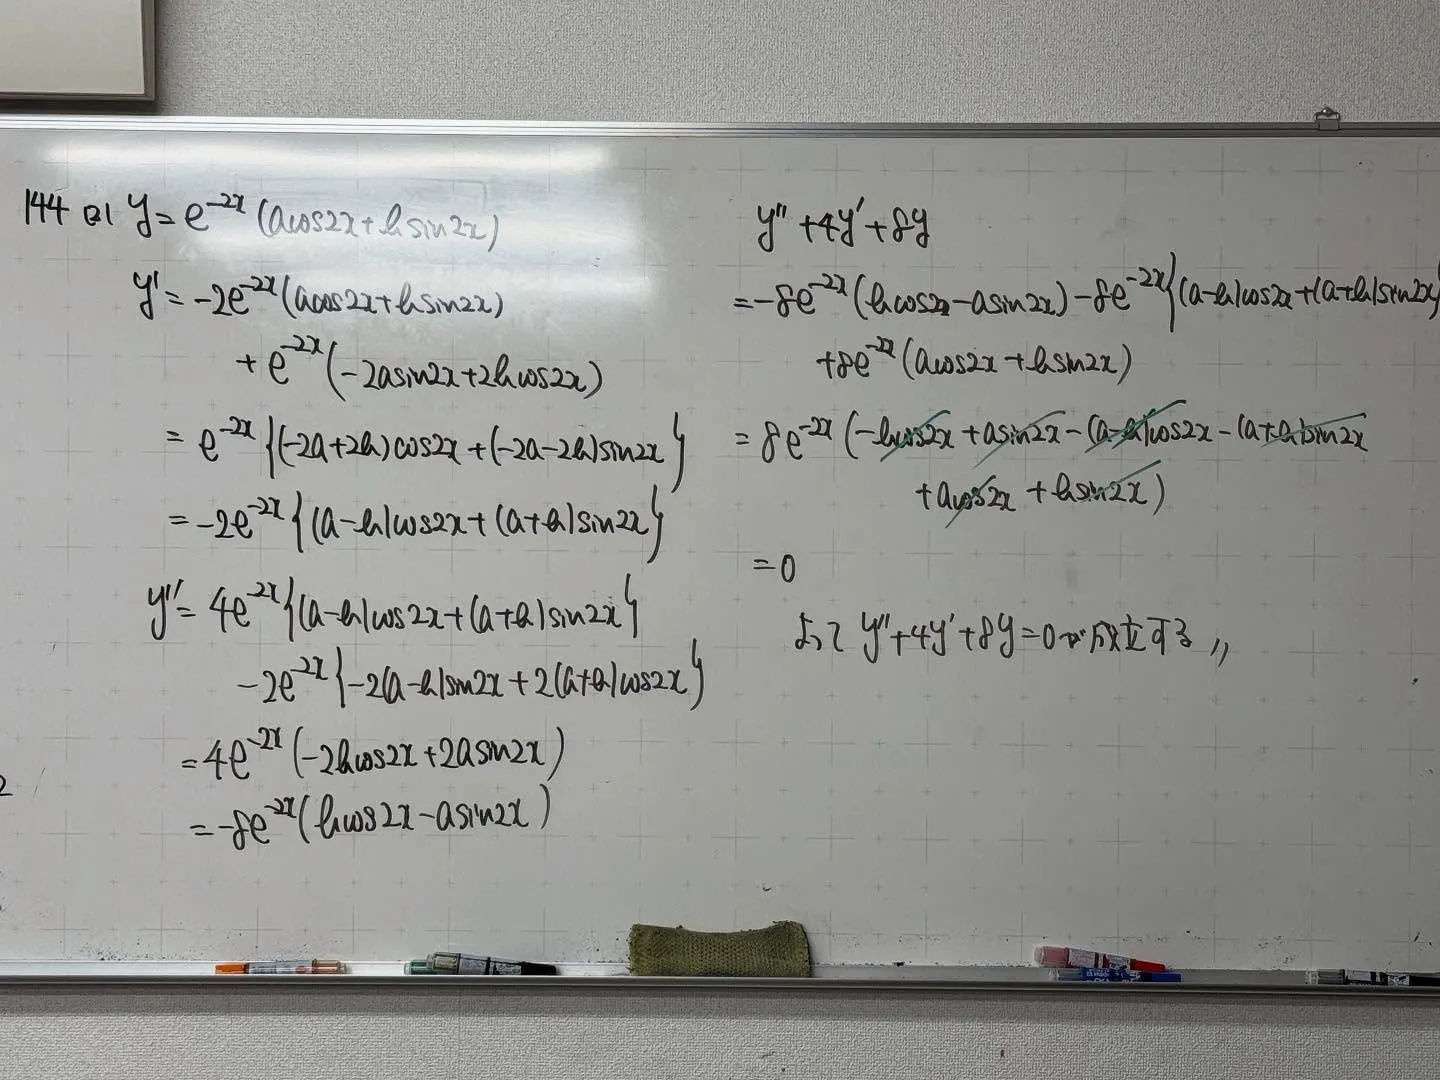 144 (2) y = e^{-2x} (acos2x + bsin2x)
y' = -2e^{-2x} (acos2x + bsin2x)
+ e^{-2x} (-2asin2x + 2bcos2x)
= e^{-2x} {(-2a+2b)cos2x + (-2a-2b)sin2x}
= -2e^{-2x} {(a-b)cos2x + (a+b)sin2x}
y'' = 4e^{-2x} {(a-b)cos2x + (a+b)sin2x}
-2e^{-2x} {-2(a-b)sin2x + 2(a+b)cos2x}
= 4e^{-2x} (-2bcos2x + 2asin2x)
= -8e^{-2x} (bcos2x - asin2x)
y'' + 4y' + 8y
= -8e^{-2x} (bcos2x - asin2x) - 8e^{-2x} {(a-b)cos2x + (a+b)sin2x}
+ 8e^{-2x} (acos2x + bsin2x)
= 8e^{-2x} (-bcos2x + asin2x - (a-b)cos2x - (a+b)sin2x
+ acos2x + bsin2x)
= 0
よって y'' + 4y' + 8y = 0 が成立する 〃
2